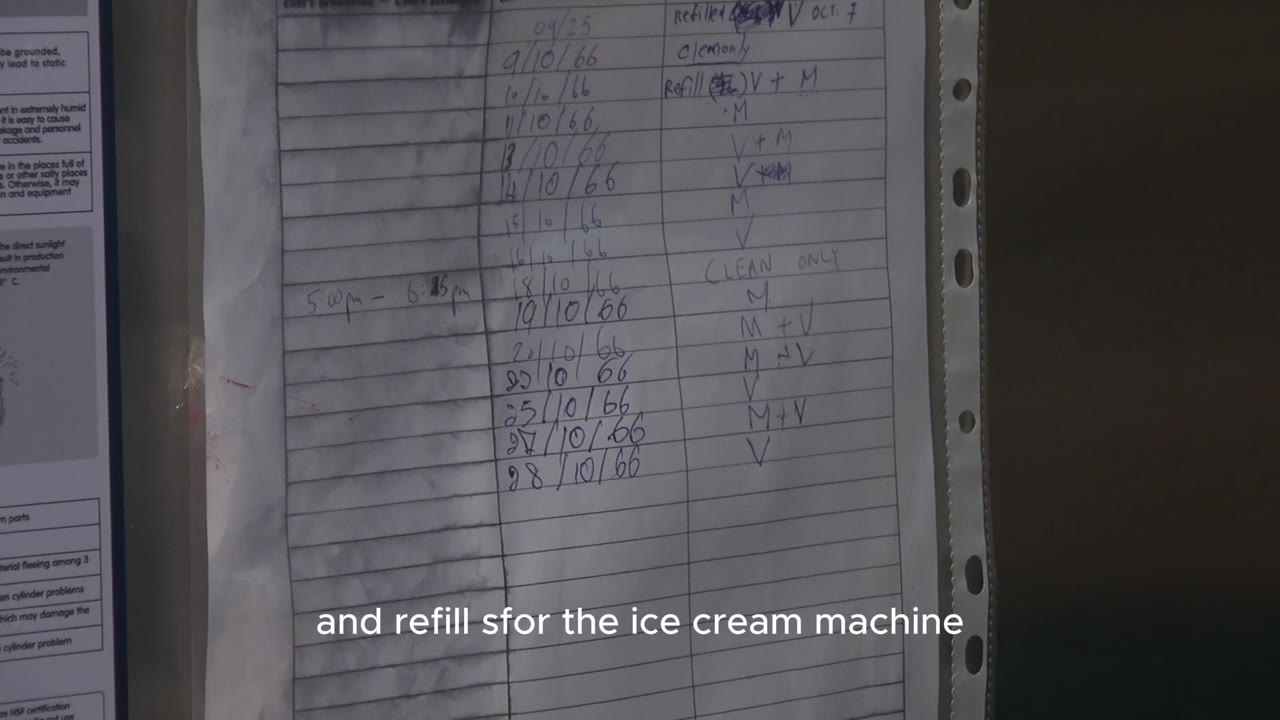 be grounded,
y lead to static
nt in extremely humid
it is easy to cause
akage and personnel
accidents.
e in the places full of
s or other salty places
s. Otherwise, it may
n and equipment
the direct sunlight
sult in production
nvironmental
° C.
n parts
terial fleeing among 3
en cylinder problems
hich may damage the
cylinder problem
ss NSF certification
09/25 Refilled V OCT. 7
9/10/66 Clemonly
10/10/66 Refill V + M
11/10/66 M
13/10/66 V + M
14/10/66 V
15/10/66 M
16/10/66 V
5:00pm - 6:15pm 18/10/66 CLEAN ONLY
19/10/66 M
21/10/66 M + V
23/10/66 M + V
25/10/66 V
27/10/66 M + V
28/10/66 V
and refill sfor the ice cream machine